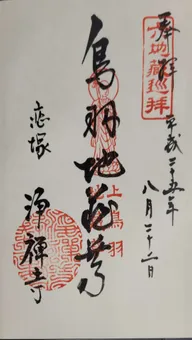 奉拝
平成二十五年
八月二十二日
六地蔵巡拝
鳥羽地蔵尊
上鳥羽
恋塚
浄禅寺